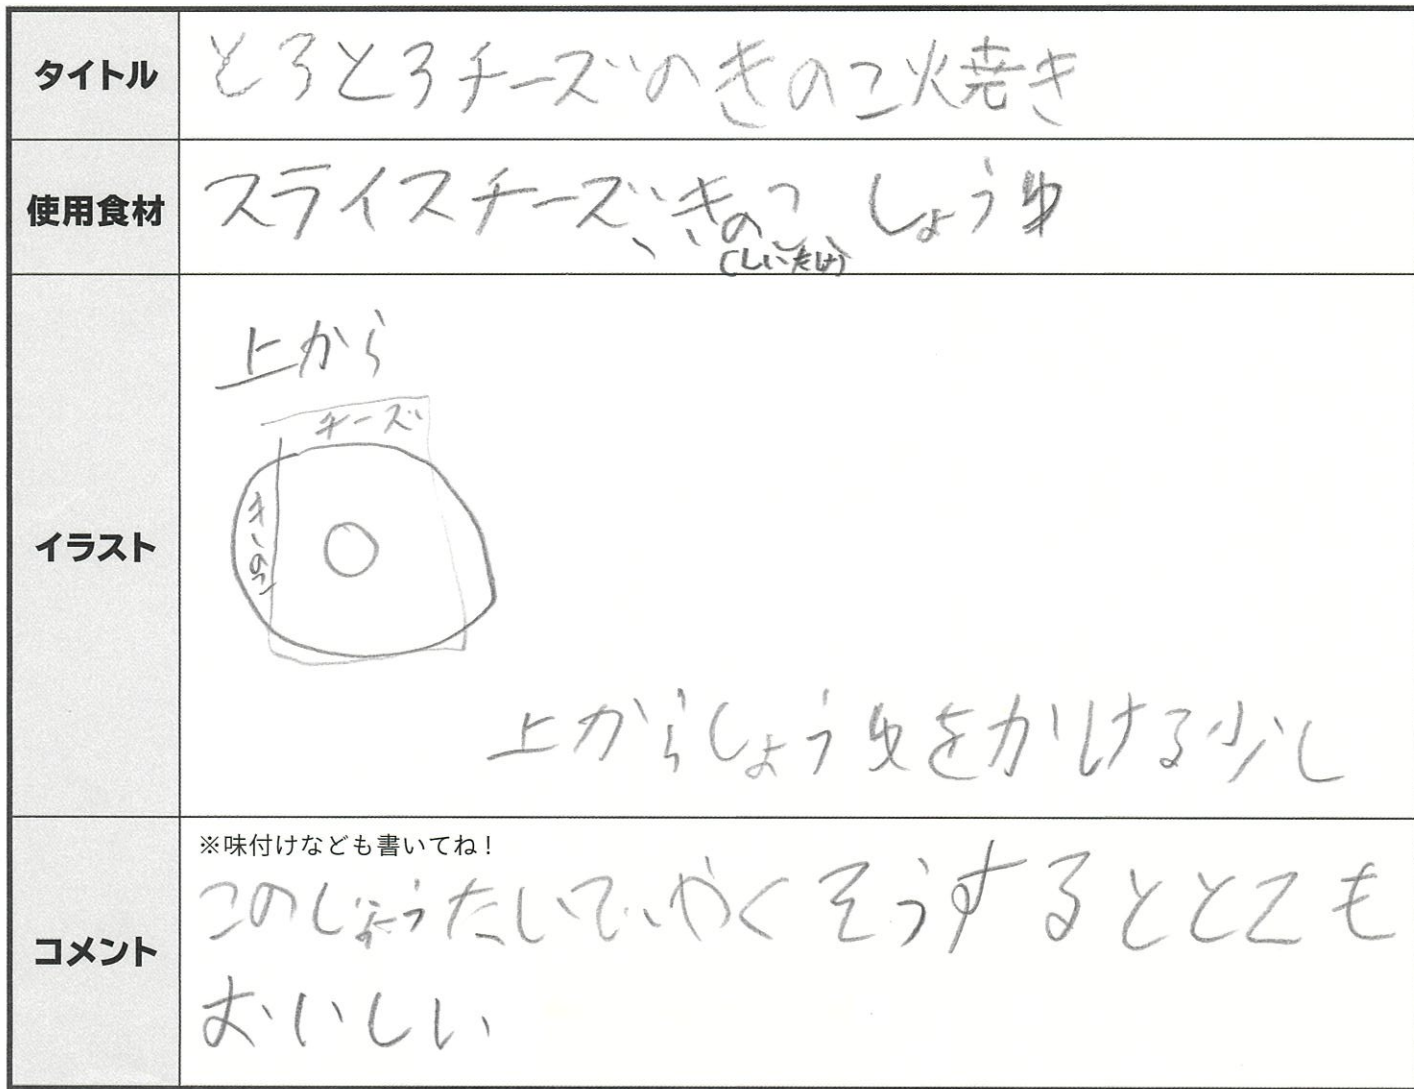 タイトル
とろとろチーズのきのこ焼き
使用食材
スライスチーズ、きのこ しょうゆ
(しいたけ)
イラスト
上から
チーズ
きのこ
上からしょうゆをかける少し
コメント
※味付けなども書いてね!
このじょうたいでやくそうするととても
おいしい